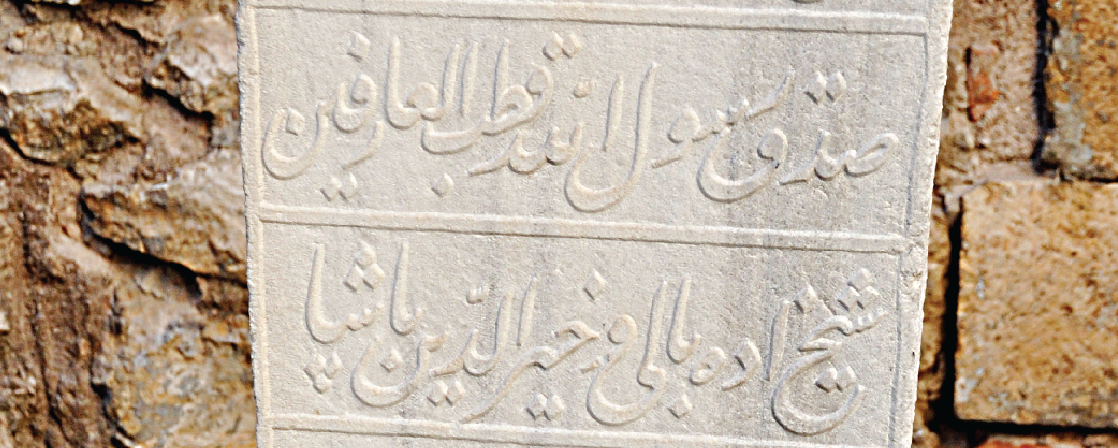 صدق رسول الله قطب العارفين
شيخ اده بالى و خير الدّين پاشا